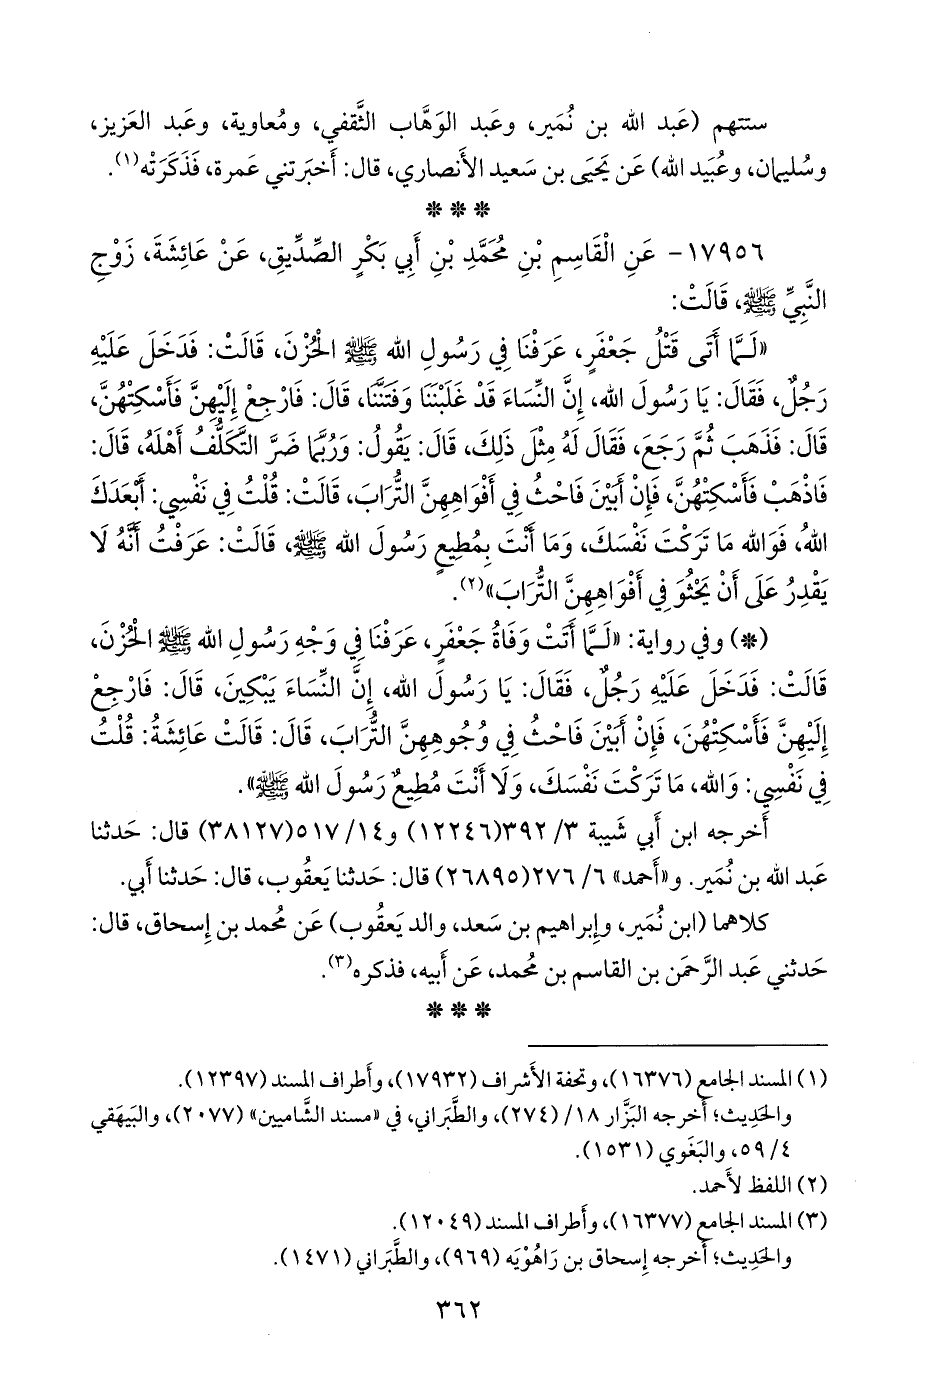 ستتهم (عَبد الله بن نُمَير، وعَبد الوَهَّاب الثَّقفي، ومُعاوية، وعَبد العَزيز،
وسُليمان، وعُبَيد الله) عَن يَحيَى بن سَعيد الأَنصاري، قال: أَخبَرتني عَمرة، فَذَكَرَتْه(١).
* * *
١٧٩٥٦- عَنِ الْقَاسِمِ بْنِ مُحَمَّدِ بْنِ أَبِي بَكْرٍ الصِّدِّيقِ، عَنْ عَائِشَةَ، زَوْجِ
النَّبِيِّ ﷺ، قَالَتْ:
«لَمَّا أَتَى قَتْلُ جَعْفَرٍ، عَرَفْنَا فِي رَسُولِ الله ﷺ الْحُزْنَ، قَالَتْ: فَدَخَلَ عَلَيْهِ
رَجُلٌ، فَقَالَ: يَا رَسُولَ الله، إِنَّ النِّسَاءَ قَدْ غَلَبْنَنَا وَفَتَنَّنَا، قَالَ: فَارْجِعْ إِلَيْهِنَّ فَأَسْكِتْهُنَّ،
قَالَ: فَذَهَبَ ثُمَّ رَجَعَ، فَقَالَ لَهُ مِثْلَ ذَلِكَ، قَالَ: يَقُولُ: وَرُبَّمَا ضَرَّ التَّكَلُّفُ أَهْلَهُ، قَالَ:
فَاذْهَبْ فَأَسْكِتْهُنَّ، فَإِنْ أَبَيْنَ فَاحْثُ فِي أَفْوَاهِهِنَّ التُّرَابَ، قَالَتْ: قُلْتُ فِي نَفْسِي: أَبْعَدَكَ
اللهُ، فَوَالله مَا تَرَكْتَ نَفْسَكَ، وَمَا أَنْتَ بِمُطِيعٍ رَسُولَ الله ﷺ، قَالَتْ: عَرَفْتُ أَنَّهُ لَا
يَقْدِرُ عَلَى أَنْ يَحْثُوَ فِي أَفْوَاهِهِنَّ التُّرَابَ»(٢).
(*) وفي رواية: «لَمَّا أَتَتْ وَفَاةُ جَعْفَرٍ، عَرَفْنَا فِي وَجْهِ رَسُولِ الله ﷺ الْحُزْنَ،
قَالَتْ: فَدَخَلَ عَلَيْهِ رَجُلٌ، فَقَالَ: يَا رَسُولَ الله، إِنَّ النِّسَاءَ يَبْكِينَ، قَالَ: فَارْجِعْ
إِلَيْهِنَّ فَأَسْكِتْهُنَ، فَإِنْ أَبَيْنَ فَاحْثُ فِي وُجُوهِهِنَّ التُّرَابَ، قَالَ: قَالَتْ عَائِشَةُ: قُلْتُ
فِي نَفْسِي: وَالله، مَا تَرَكْتَ نَفْسَكَ، وَلَا أَنْتَ مُطِيعٌ رَسُولَ الله ﷺ».
أَخرجه ابن أَبي شَيبة ٣/ ٣٩٢(١٢٢٤٦) و١٤/ ٥١٧(٣٨١٢٧) قال: حَدثنا
عَبد الله بن نُمَير. و«أَحمد» ٦/ ٢٧٦(٢٦٨٩٥) قال: حَدثنا يَعقُوب، قال: حَدثنا أَبي.
كلاهما (ابن نُمَير، وإِبراهيم بن سَعد، والد يَعقُوب) عَن مُحمد بن إِسحاق، قال:
حَدثني عَبد الرَّحمَن بن القاسم بن مُحمد، عَن أَبيه، فذكره(٣).
* * *
(١) المسند الجامع (١٦٣٧٦)، وتحفة الأَشراف (١٧٩٣٢)، وأَطراف المسند (١٢٣٩٧).
والحَدِيث؛ أَخرجه البَزَّار ١٨/ (٢٧٤)، والطَّبَراني، في «مسند الشَّاميين» (٢٠٧٧)، والبَيهَقي
٤/ ٥٩، والبَغَوي (١٥٣١).
(٢) اللفظ لأَحمد.
(٣) المسند الجامع (١٦٣٧٧)، وأَطراف المسند (١٢٠٤٩).
والحَدِيث؛ أَخرجه إِسحاق بن رَاهُوْيَه (٩٦٩)، والطَّبَراني (١٤٧١).
٣٦٢